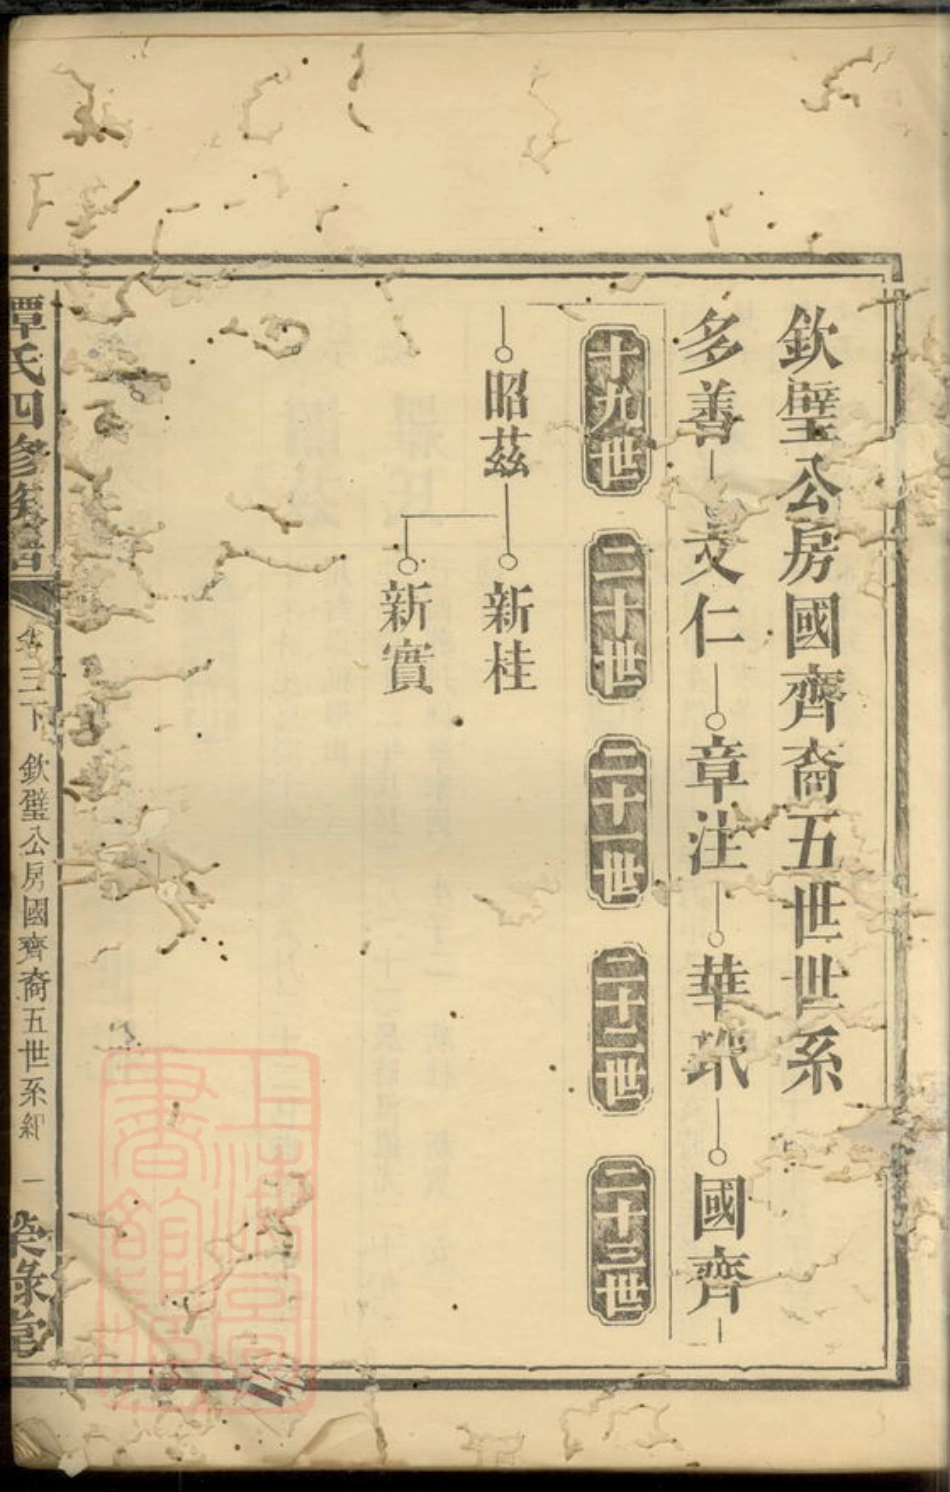 欽璧公房國齊裔五世世系
多善 文仁 章注 華 國齊
十九世 二十世 二十一世 二十二世 二十三世
昭茲 新桂
新實
譚氏四修族譜 卷三下 欽璧公房國齊裔五世系紀 一 榮祿堂
上海圖書館藏